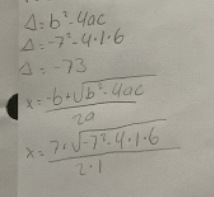 Δ=b²-4ac
Δ=-7²-4·1·6
Δ=-73
x=-b+√b²-4ac
2a
x=7+√-7²-4·1·6
2·1